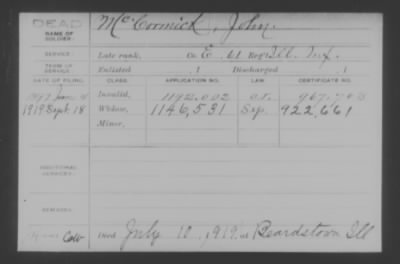 DEAD
McCormick, John
NAME OF SOLDIER:
SERVICE:
Late rank, Co. E, 61 Reg't Ill. Inf.
TERM OF SERVICE:
Enlisted , 1 Discharged , 1
DATE OF FILING. CLASS. APPLICATION NO. LAW. CERTIFICATE NO.
Invalid,
1919 Sept. 18 Widow, 1146,531 Sep. 922,661
Minor,
ADDITIONAL SERVICES:
REMARKS:
Died July 10, 1919, at Beardstown Ill